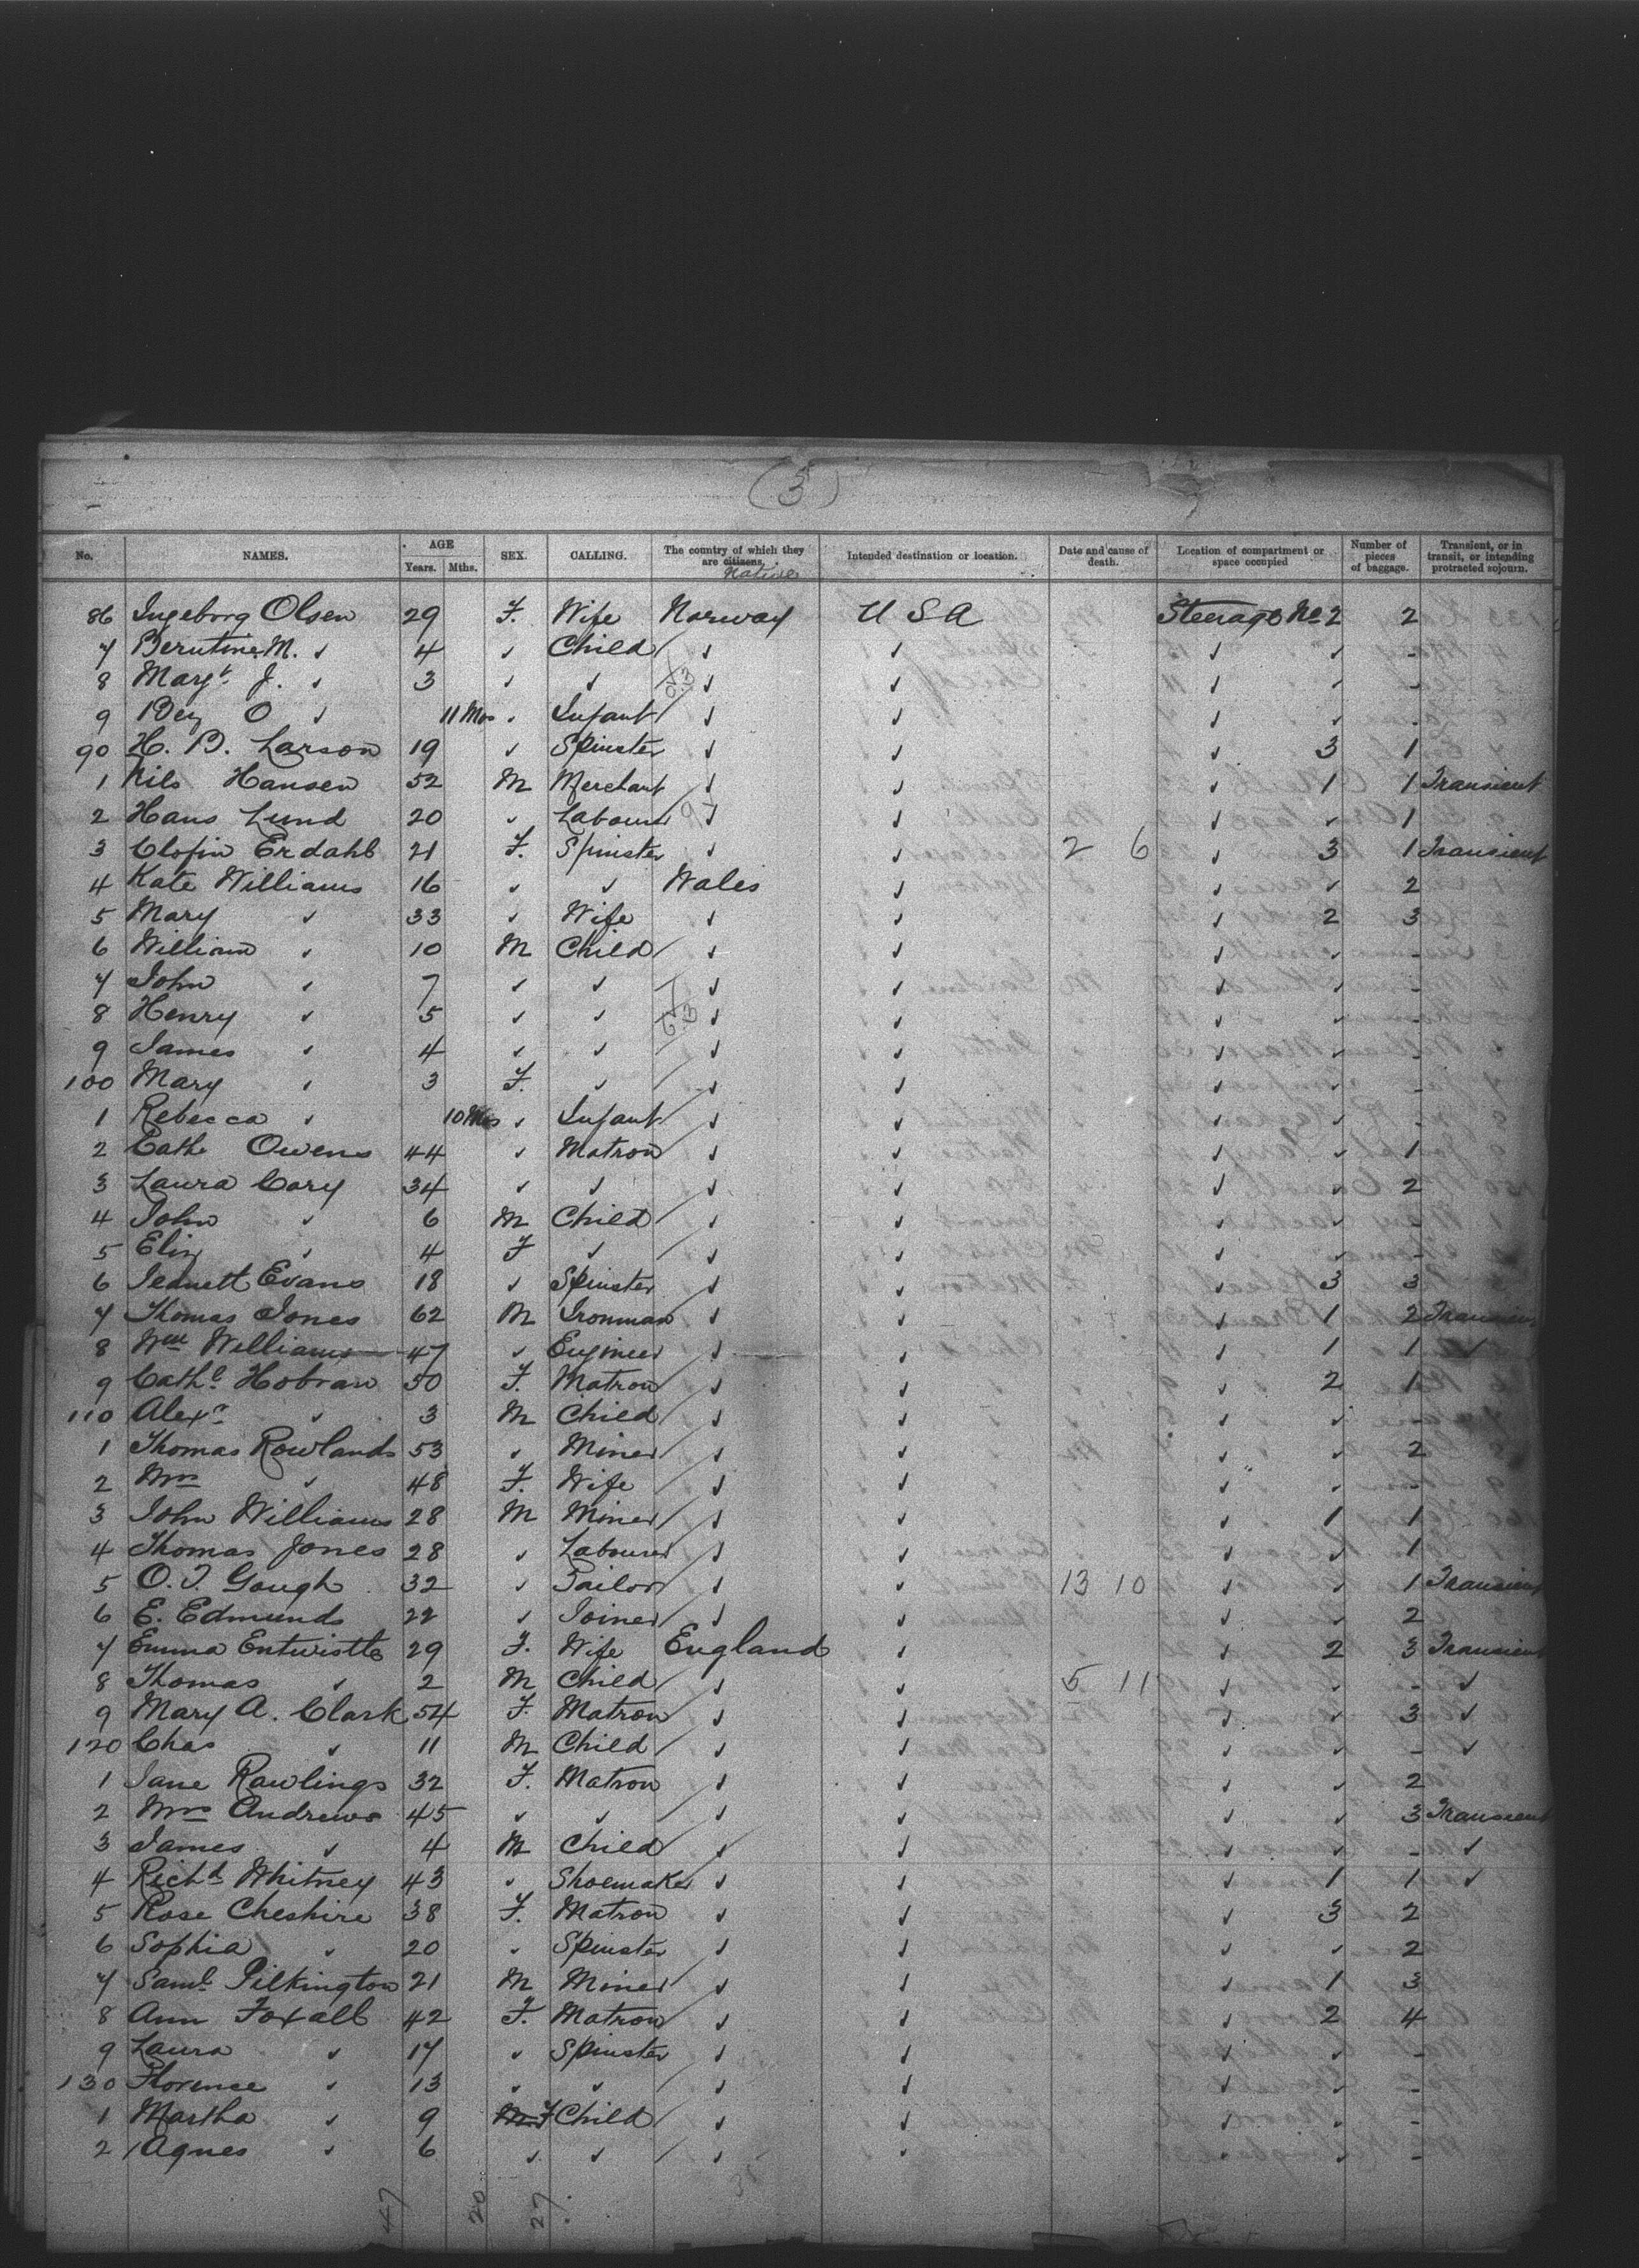 (3)
No. NAMES. AGE Years. Mths. SEX. CALLING. The country of which they are citizens. Native Intended destination or location. Date and cause of death. Location of compartment or space occupied Number of pieces of baggage. Transient, or in transit, or intending protracted sojourn.
86 Ingeborg Olsen 29 F. Wife Norway U S A Steerage No 2 2
7 Berutine M. ✓ 4 ✓ Child ✓ ✓ ✓ ✓ -
8 Mary J. ✓ 3 ✓ ✓ ✓ ✓ ✓ ✓ -
9 O ✓ 11 Mos ✓ Infant ✓ ✓ ✓ ✓ -
90 H. B. Larson 19 ✓ Spinster ✓ ✓ ✓ 3 1
1 Nils Hansen 52 M Merchant ✓ ✓ ✓ 1 1 Transient
2 Hans Lund 20 ✓ Labourer ✓ ✓ ✓ ✓ 1
3 Erdahl 21 F. Spinster ✓ ✓ 2 6 ✓ 3 1 Transient
4 Kate Williams 16 ✓ ✓ Wales ✓ ✓ ✓ 2
5 Mary ✓ 33 ✓ Wife ✓ ✓ ✓ 2 3
6 William ✓ 10 M Child ✓ ✓ ✓ ✓ -
7 John ✓ 7 ✓ ✓ ✓ ✓ ✓ ✓ -
8 Henry ✓ 5 ✓ ✓ ✓ ✓ ✓ ✓ -
9 James ✓ 4 ✓ ✓ ✓ ✓ ✓ ✓ -
100 Mary ✓ 3 F. ✓ ✓ ✓ ✓ ✓ -
1 Rebecca ✓ 10 Mos ✓ Infant ✓ ✓ ✓ ✓ -
2 Cathe Owens 44 ✓ Matron ✓ ✓ ✓ ✓ 1
3 Laura Cory 34 ✓ ✓ ✓ ✓ ✓ ✓ 2
4 John ✓ 6 M Child ✓ ✓ ✓ ✓ -
5 Eliz ✓ 4 F ✓ ✓ ✓ ✓ ✓ -
6 Jennett Evans 18 ✓ Spinster ✓ ✓ ✓ 3 3
7 Thomas Jones 62 M Ironman ✓ ✓ ✓ 1 2 Transient
8 Wm Williams 47 ✓ Engineer ✓ ✓ ✓ 1 1 ✓
9 Cathe Hobran 50 F. Matron ✓ ✓ ✓ 2 1
110 Alexr ✓ 3 M Child ✓ ✓ ✓ ✓ -
1 Thomas Rowlands 53 ✓ Miner ✓ ✓ ✓ ✓ 2
2 Mrs ✓ 48 F. Wife ✓ ✓ ✓ ✓ -
3 John Williams 28 M Miner ✓ ✓ ✓ 1 1
4 Thomas Jones 28 ✓ Labourer ✓ ✓ ✓ ✓ 1
5 O. T. Gough 32 ✓ Tailor ✓ ✓ 13 10 ✓ ✓ 1 Transient
6 E. Edmunds 22 ✓ Joiner ✓ ✓ ✓ ✓ 2
7 Emma Entwistle 29 F. Wife England ✓ ✓ 2 3 Transient
8 Thomas ✓ 2 M Child ✓ ✓ 5 11 ✓ ✓ - ✓
9 Mary A. Clark 54 F. Matron ✓ ✓ ✓ ✓ 3 ✓
120 Chas ✓ 11 M Child ✓ ✓ ✓ ✓ - ✓
1 Jane Rawlings 32 F. Matron ✓ ✓ ✓ ✓ 2
2 Mrs Andrews 45 ✓ ✓ ✓ ✓ ✓ ✓ 3 Transient
3 James ✓ 4 M Child ✓ ✓ ✓ ✓ - ✓
4 Richd Whitney 43 ✓ Shoemaker ✓ ✓ ✓ 1 1 ✓
5 Rose Cheshire 38 F. Matron ✓ ✓ ✓ 3 2
6 Sophia ✓ 20 ✓ Spinster ✓ ✓ ✓ ✓ 2
7 Saml Pilkington 21 M Miner ✓ ✓ ✓ 1 3
8 Ann Foxall 42 F. Matron ✓ ✓ ✓ 2 4
9 Laura ✓ 17 ✓ Spinster ✓ ✓ ✓ ✓ -
130 Florence ✓ 13 ✓ ✓ ✓ ✓ ✓ ✓ -
1 Martha ✓ 9 F Child ✓ ✓ ✓ ✓ -
2 Agnes ✓ 6 ✓ ✓ ✓ ✓ ✓ ✓ -
47 20 27